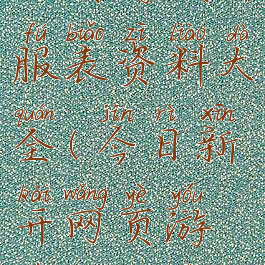 fú biǎo zī liào dà
服表资料大
quán jīn rì xīn
全(今日新
kāi wǎng yè yóu
开网页游